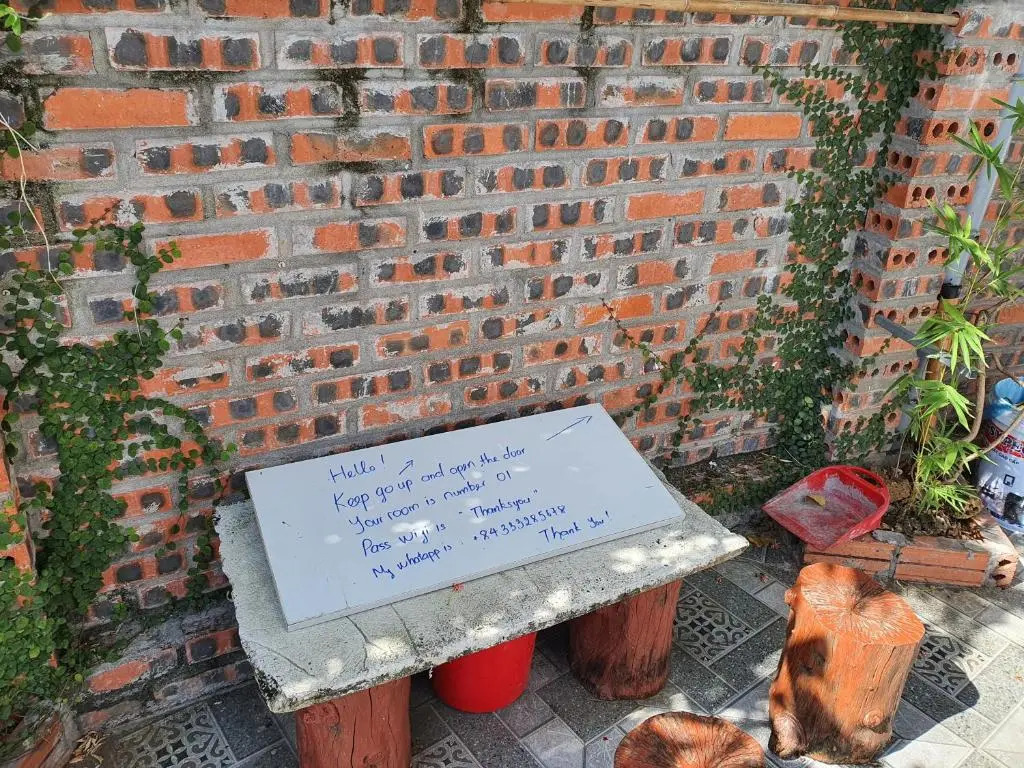 Hello!
Keep go up and open the door
Your room is number 01
Pass wifi is "Thanksyou"
My whatapp is : +84333285678
Thank you!